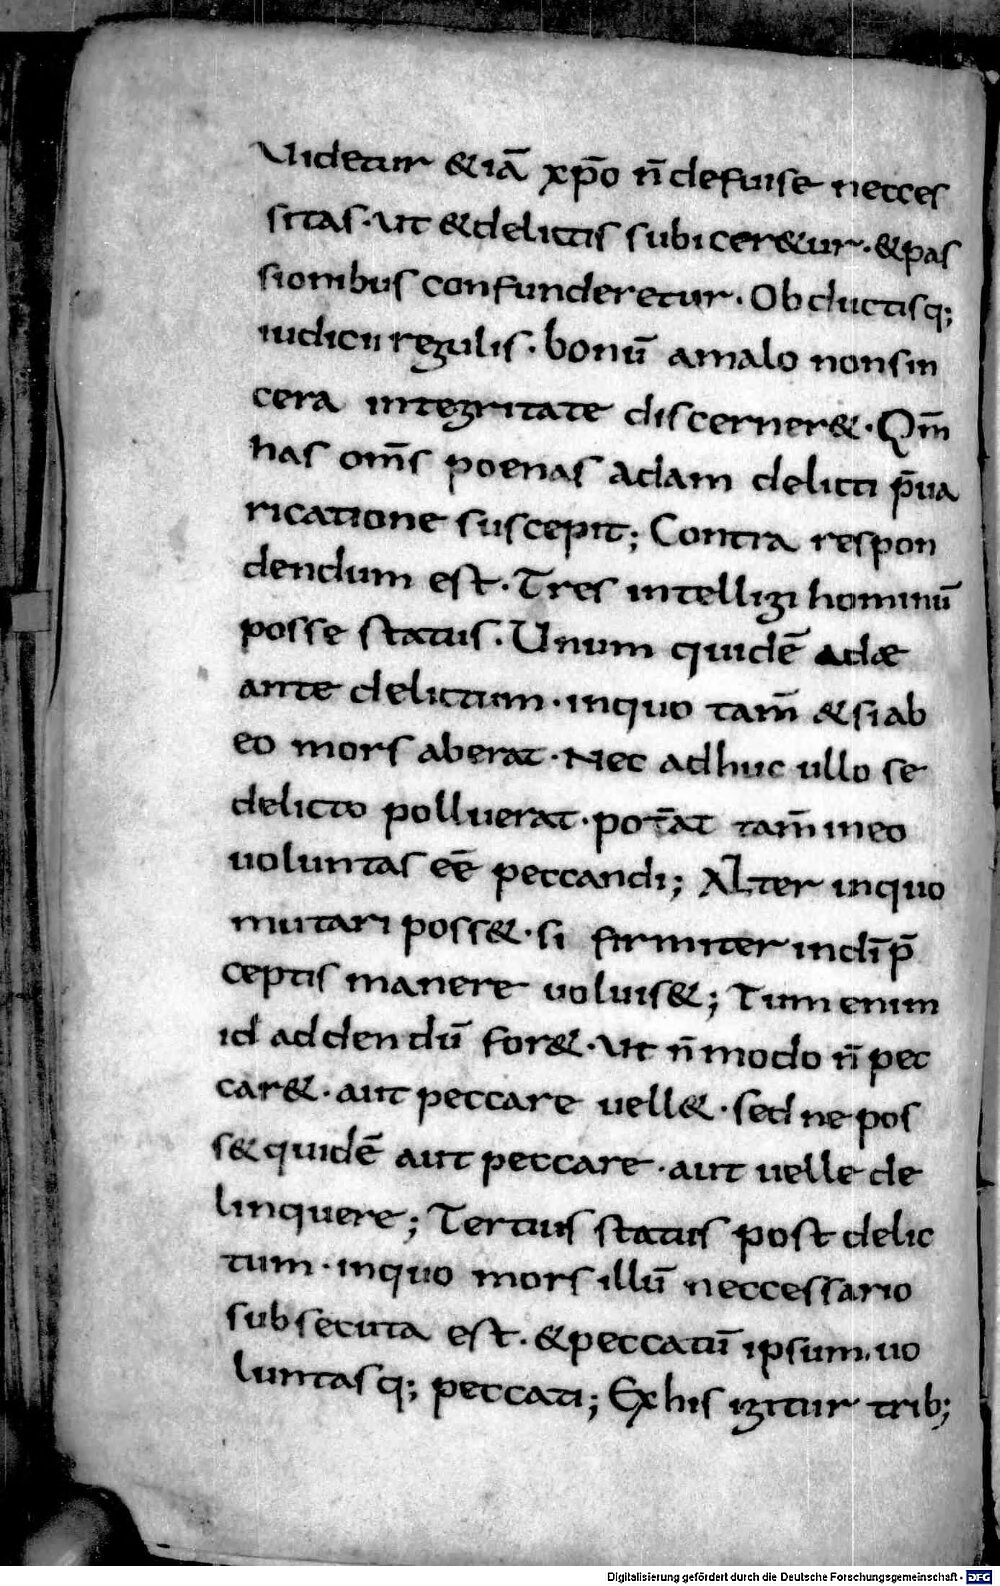 Videtur &iā xp̄o n̄ defuise necces
sitas · ut & delictis subicer&ur · & pas
sionibus confunderetur · Obductisq;
iudicii regulis · bonū a malo non sin
cera integritate discerner& · Qm̄
has om̄s poenas adam delicti p̄ua
ricatione suscepit; Contra respon
dendum est · Tres intelligi hominū
posse status · Unum quidē adæ
ante delictum · in quo tam̄ & si ab
eo mors aberat · Nec adhuc ullo se
delicto polluerat · pot̄at tam̄ in eo
uoluntas eē peccandi; Alter in quo
mutari poss& · si firmiter in dī p̄
ceptis manere uoluis&; Tum enim
id addendū for& · ut n̄ modo n̄ pec
car& · aut peccare uell& · sed ne pos
s& quidē aut peccare · aut uelle de
linquere; Tertius status post delic
tum · in quo mors illū neccessario
subsecuta est · & peccatū ipsum · uo
luntasq; peccati; Ex his igitur trib;
Digitalisierung gefördert durch die Deutsche Forschungsgemeinschaft - DFG